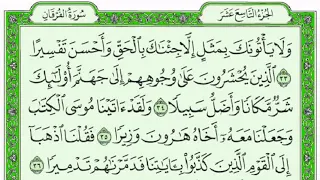 الجزء التاسع عشر
سورة الفرقان
وَلَا يَأْتُونَكَ بِمَثَلٍ إِلَّا جِئْنَاكَ بِالْحَقِّ وَأَحْسَنَ تَفْسِيرًا
٣٣ الَّذِينَ يُحْشَرُونَ عَلَى وُجُوهِهِمْ إِلَى جَهَنَّمَ أُولَٰئِكَ
شَرٌّ مَكَانًا وَأَضَلُّ سَبِيلًا ٣٤ وَلَقَدْ آتَيْنَا مُوسَى الْكِتَابَ
وَجَعَلْنَا مَعَهُ أَخَاهُ هَارُونَ وَزِيرًا ٣٥ فَقُلْنَا اذْهَبَا
إِلَى الْقَوْمِ الَّذِينَ كَذَّبُوا بِآيَاتِنَا فَدَمَّرْنَاهُمْ تَدْمِيرًا ٣٦